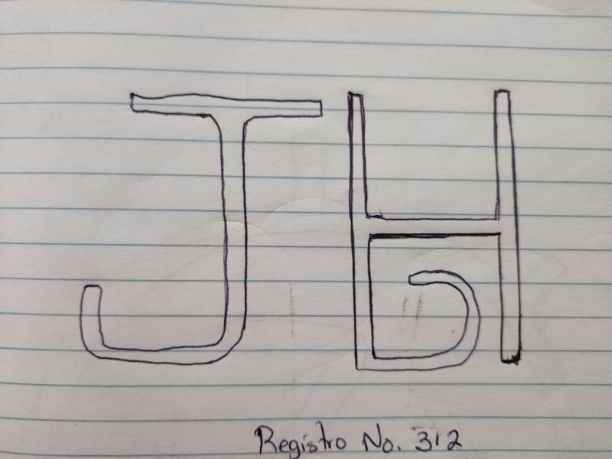 JH
Registro No. 312